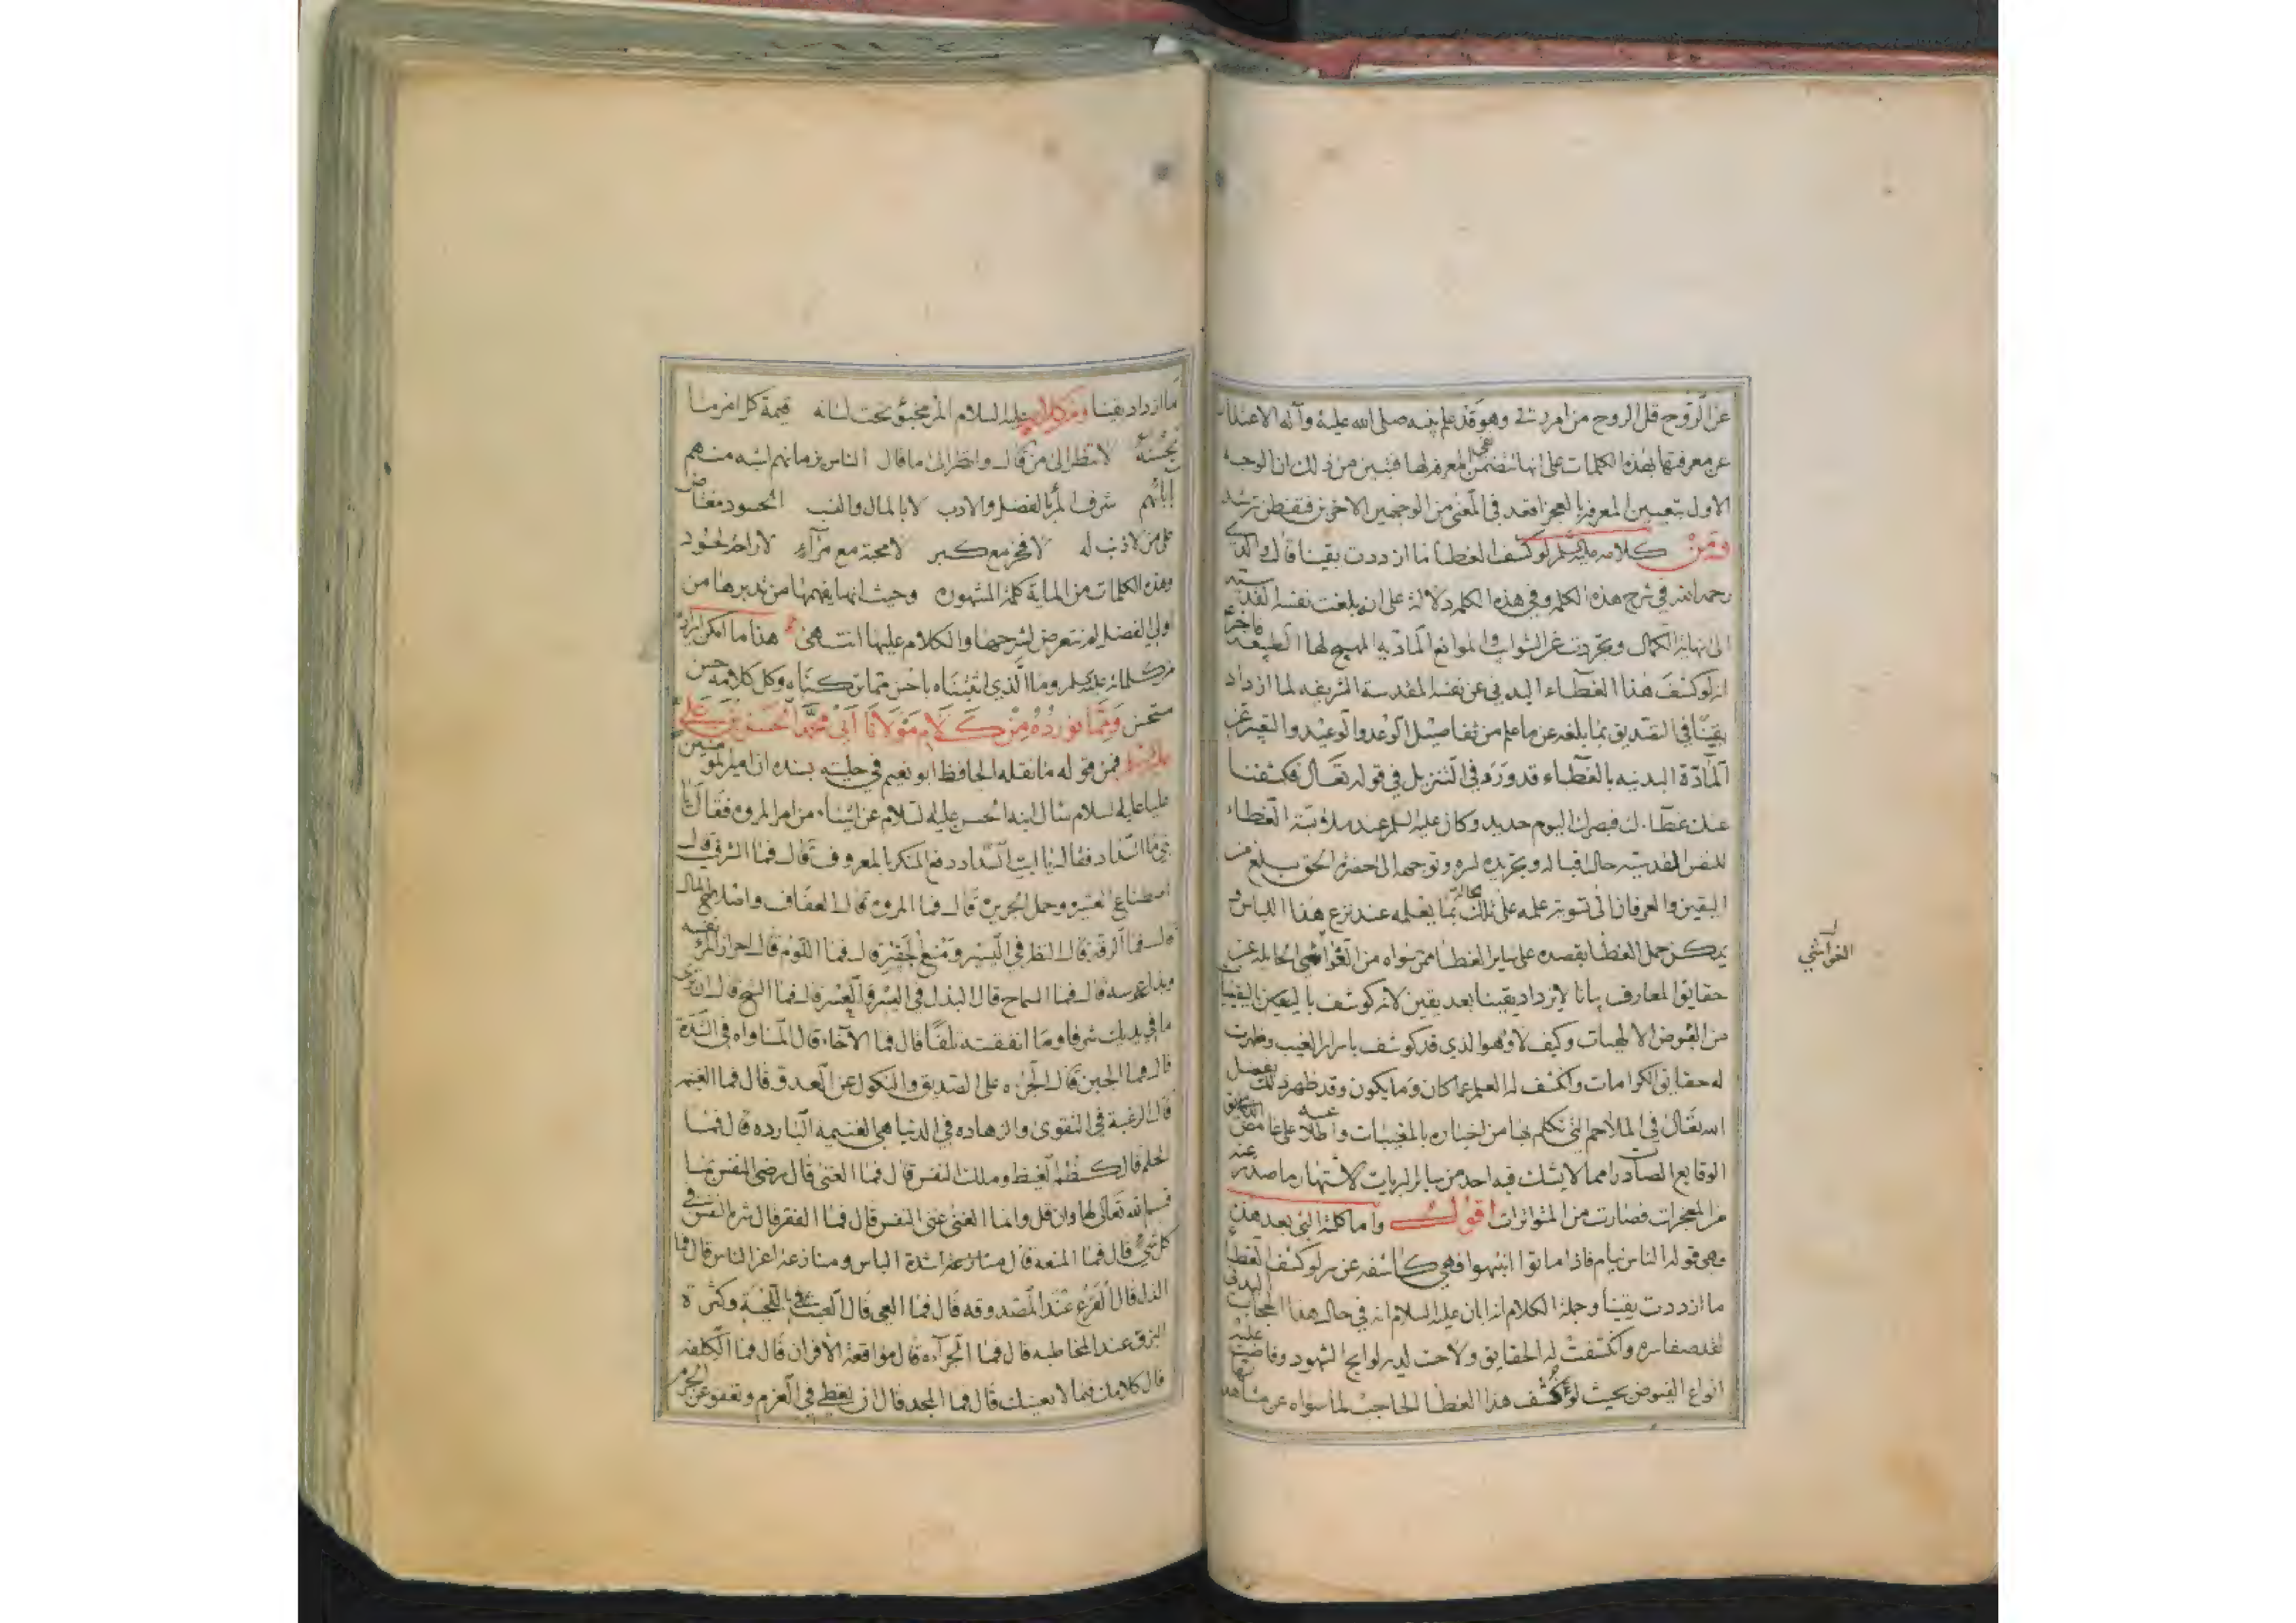 عن الروح قل الروح من امر ربي وهو قد علم بقينه صلى الله عليه وآله الاعتذار
عن معرفتها بهذه الكلمات على انها تتضمن المعرفة لها فتبين من ذلك ان الوجه
الاول بتعيين المعرفة بالعجز افعد في المعنى من الوجهين الاخرين فتفطن ترشد
ومن كلامه عليه السلم لو كشف الغطا ما ازددت يقينا قال والدي
رحمه الله في شرح هذه الكلمة وفي هذه الكلمة دلالة على انه بلغت نفسه القدسية
الى نهاية الكمال وتجردت عن الشوايب والموانع المادية المهيج لها الطبيعة فاخبر
انه لو كشف هذا الغطاء البدني عن نفسه المقدسة الشريفة لما ازداد
يقينا في التصديق بما بلغه عن ما علم من تفاصيل الوعد والوعيد والتعبير عن
المادة البدنية بالغطاء قد ورد في التنزيل في قوله تعالى فكشفنا
عنك غطاءك فبصرك اليوم حديد وكان عليه السلم عند ملابسة الغطاء
للنفس القدسية حال اقباله وتجريده لسره وتوجهه الى حضرة الحق بلغ من
اليقين والعرفان الى تنور علمه على تلك الحالة بما يعلمه عند نزع هذا اللباس و
يدكن حمل الغطا بقصده على ساير الغطا ممن سواه من الغواشي الحايلة عن
حقايق المعارف بانا لا يزداد يقينا بعد يقين لانه كوشف باليقين
من الفيوض الالهيات وكيف لا وهو الذي قد كوشف باسرار الغيب وظهرت
له حقايق الكرامات وانكشف له العلم عما كان وما يكون وقد ظهر ذلك بفضل
الله تعالى في الملاحم التي تكلم بها من اخباره بالمغيبات واطلاعه على غامض
الوقايع الصادرات مما لا يشك فيه احد من ساير البريات لاشتهار ما صدر عنه
من المعجزات فصارت من المتواترات اقول واما كلمة التي بعد هذه
فهي قوله الناس نيام فاذا ماتوا انتبهوا فهي كاشفة عن سر لو كشف الغطا
ما ازددت يقينا وجملة الكلام انه ابان عليه السلام انه في حال هذا الحجاب البدني
لقد صفا سره وانكشفت له الحقايق ولاحت لديه لوايح الشهود وفاضت عليه
انواع الفيوض بحيث لو كشف هذا الغطا الحاجب لما سواه عن مشاهدتها
الغواشي
ما ازداد يقينا ومن كلامه عليه السلام المرء مخبؤ تحت لسانه قيمة كل امرء ما
يحسنه لا تنظر الى من قال وانظر الى ما قال الناس بزمانهم اشبه منهم
بآبائهم شرف المرء بالفضل والادب لا بالمال والنسب الحسود مغتاض
على من لا ذنب له لا فخر مع كبر لا محبة مع مرآء لا راحة لحسود
وهذه الكلمات من الماية كلمة المشهورة وحيث انها يفهمها من تدبرها من
اولي الفضل لم نتعرض لشرحها والكلام عليها انتهى هذا ما امكن ايراده
من كلماته عليه السلم وما الذي اثبتناه باحسن مما تركناه وكل كلامه حسن
مستحسن ومما نورده من كلام مولانا ابي محمد الحسن بن علي
عليهما السلم فمن قوله ما نقله الحافظ ابو نعيم في حليته بسنده ان امير المومنين
عليا عليه السلام سال ابنه الحسن عليه السلام عن اشياء من امر المروة فقال يا
بني ما السداد فقال يا ابت السداد دفع المنكر بالمعروف قال فما الشرف قال
اصطناع العشيرة وحمل الجريرة قال فما المروة قال العفاف واصلاح المال
قال فما الرقة قال النظر في اليسير ومنع الحقير قال فما اللوم قال احراز المرء نفسه
وبذله عرسه قال فما السماح قال البذل في اليسر والعسر قال فما الشح قال ان ترى
ما في يديك شرفا وما انفقته تلفا قال فما الآخاء قال المساواه في الشدة
قال فما الجبن قال الجرءه على الصديق والنكول عن العدو قال فما الغنيمة
قال الرغبة في التقوى والزهاده في الدنيا هي الغنيمه البارده قال فما
الحلم قال كظم الغيظ وملك النفس قال فما الغنى قال رضى النفس بما
قسم الله تعالى لها وان قل وانما الغنى غنى النفس قال فما الفقر قال شره النفس في
كل شيء قال فما المنعه قال شدة الباس ومنازعة اعز الناس قال فما
الذل قال الفزع عند المصدوقه قال فما العي قال العبث باللحية وكثرة
البزق عند المخاطبه قال فما الجرآءه قال مواقعة الاقران قال فما الكلفه
قال كلامك فيما لا يعنيك قال فما المجد قال ان تعطي في الغرم وتعفو عن الجرم